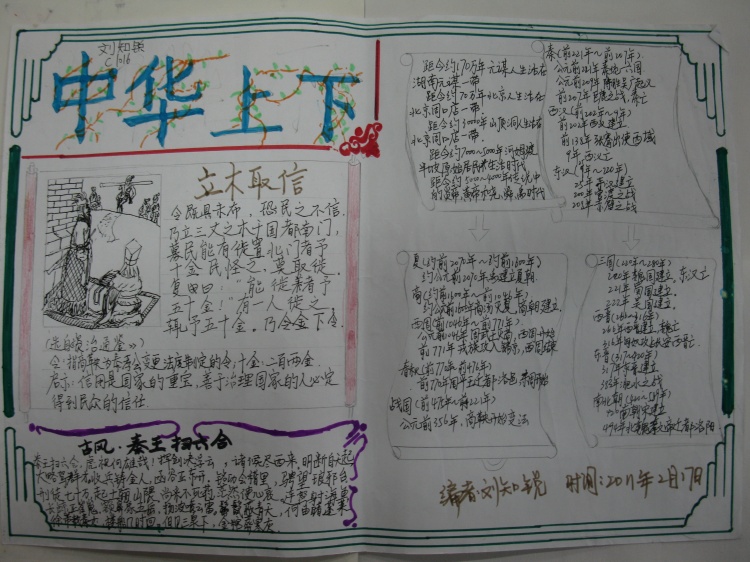 刘知锐
中华上下
立木取信
令既具未布，恐民之不信.
乃立三丈之木于国都南门，
募民能有徙置北门者予
十金民怪之，莫敢徙.
复曰："能徙者予
五十金！"有一人徙之
辄予五十金.乃令金下令.
(选自资治通鉴》)
令：指商鞅为秦孝公变更法度制定的令；十金：二百两金.
启示：信用是国家的重宝，善于治理国家的人必定
得到民众的信任
古风·秦王扫六合
秦王扫六合，虎视何雄哉！挥剑决浮云，诸侯尽西来.明断自天启
大略驾群才.收兵铸金人，函谷正东开.铭功会稽里，骋望琅邪台.
刑徒七十万，起土骊山隈.尚采不死药，茫然使心哀.连弩射海鱼
距今约170万年元谋人生活在
湖南元谋一带.
距今约70万年北京人生活在
北京周口店一带.
距今约30000年山顶洞人生活在
北京周口店一带.
距今约7000~5000年河姆渡
半坡原始居民生活时代
距今约5000~4000年传说中
的炎帝,黄帝,尧,舜,禹时代
秦(前221年~前207年)
公元前221年秦统一六国
公元前209年陈胜吴广起义
前207年巨鹿之战,秦亡
西汉(前202年~9年)
前202年西汉建立
前138年张骞出使西域
9年,西汉亡
东汉(9年~220年)
25年东汉建立
200年官渡之战
208年赤壁之战
夏(约前2070年~约前1600年)
约公元前2070年禹建立夏朝
商(约前1600年~前1046年)
约公元前1600年商汤灭夏,商朝建立
西周(前1046年~前771年)
公元前1046年周武王灭商,西周开始
前771年犬戎攻入镐京,西周结束
春秋(前770年~前476年)
前770年周平王迁都洛邑,东周开始
战国(前475年~前221年)
公元前356年,商鞅开始变法
三国(220年~280年)
220年魏国建立,东汉亡
221年蜀国建立
222年吴国建立
西晋(265年~316年)
265年西晋建立,魏亡
东晋(317~420年)
317年东晋建立
383年淝水之战
南北朝(420~589年)
420南朝宋建立
494年北魏孝文帝迁都洛阳
编者：刘知锐 时间：2011年2月17日